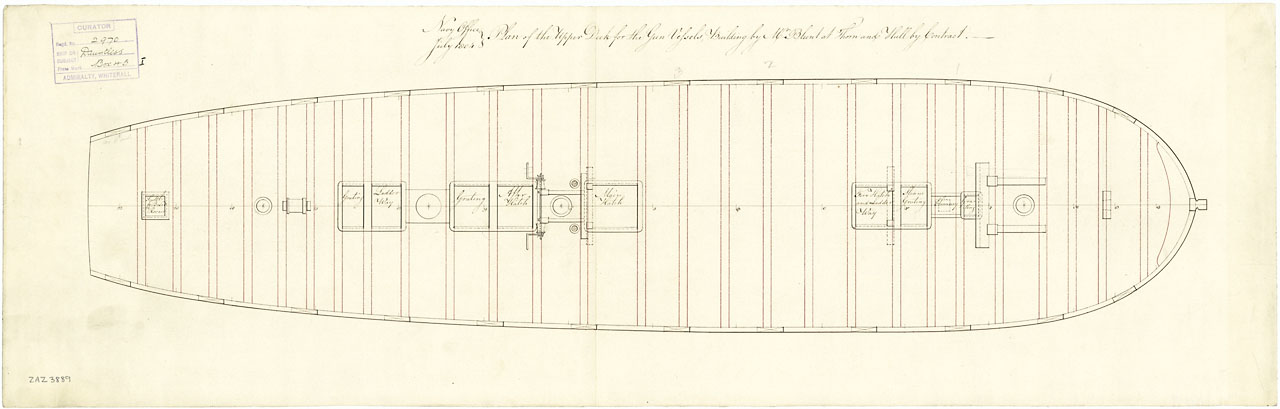 CURATOR
Regd. No. 2970
Dauntless
Box 43
ADMIRALTY, WHITEHALL
I
Navy Office
July 1804
Plan of the Upper Deck for the Gun Vessels, Building by Mr. Blunt at Thorn and Hull by Contract.
3
2
1
Grating
Ladder Way
Grating
After Hatch
Main Hatch
Fore Hatch and Ladder Way
Steam Grating
ZAZ3889